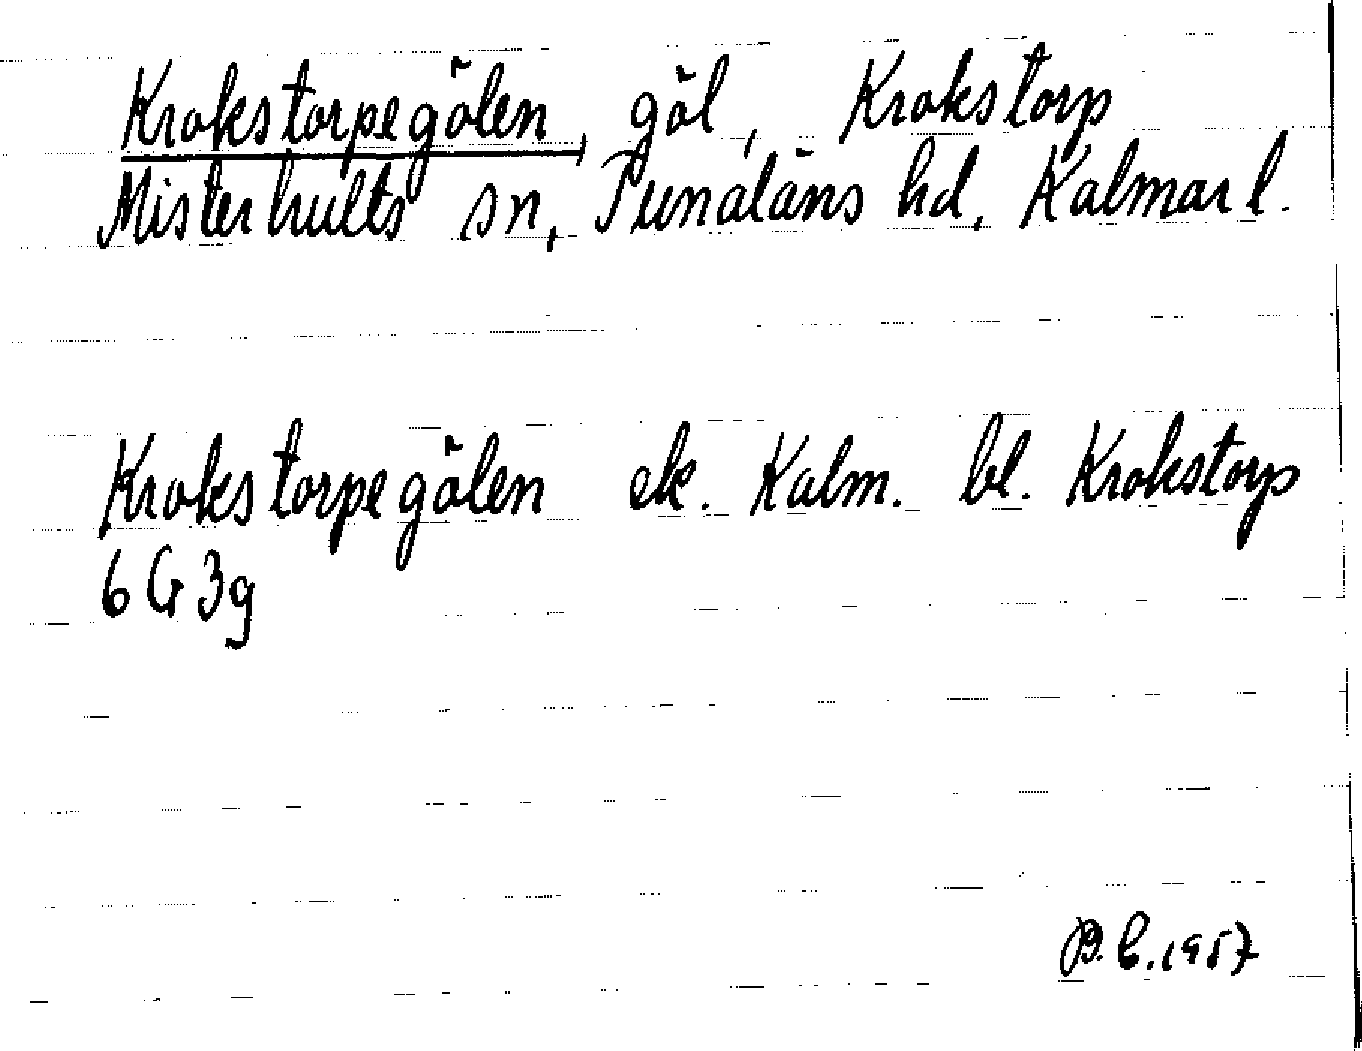 Krokstorpegölen, göl, Krokstorp
Misterhults sn, Tunaläns hd, Kalmar l.
Krokstorpegölen ek. Kalm. bl. Krokstorp
6 G 3g
B. C. 1957